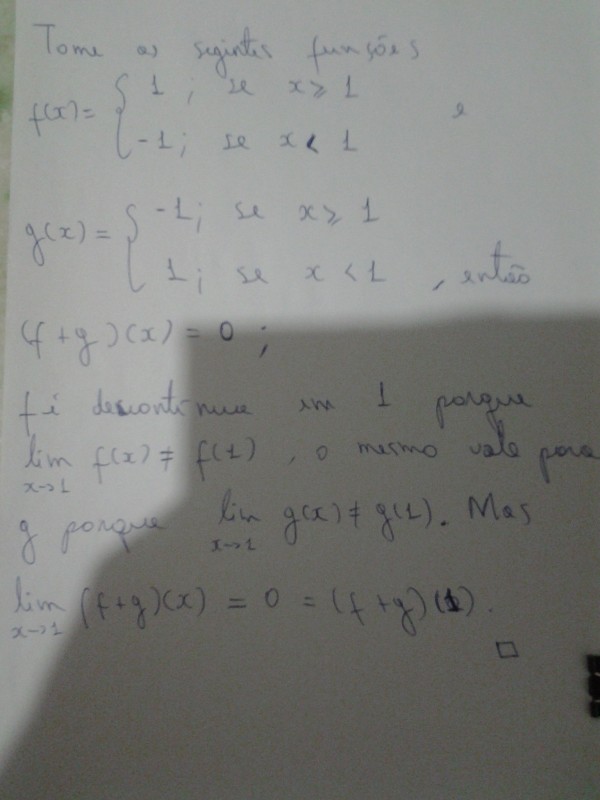 Tome as segintes funções
f(x) = { 1 ; se x ≥ 1
-1 ; se x < 1 e
g(x) = { -1 ; se x ≥ 1
1 ; se x < 1 , então
(f + g)(x) = 0 ;
f é descontínua em 1 porque
lim x→1 f(x) ≠ f(1) , o mesmo vale para
g porque lim x→1 g(x) ≠ g(1). Mas
lim x→1 (f+g)(x) = 0 = (f+g)(1).
□